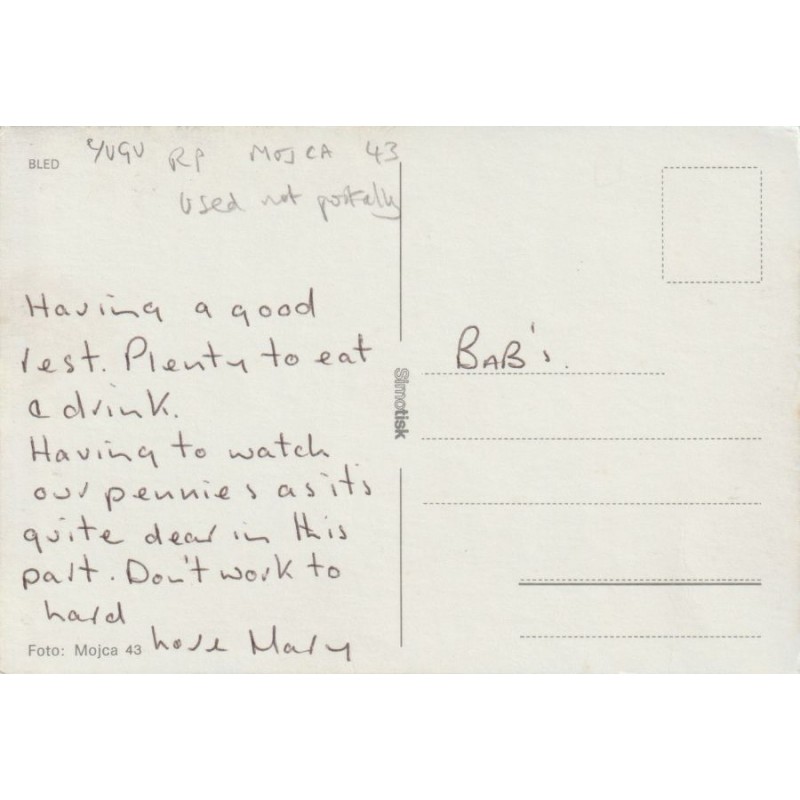 BLED
Y/UGU RP MOJCA 43
Used not postally
Having a good
rest. Plenty to eat
& drink.
Having to watch
our pennies as it's
quite dear in this
part. Don't work to
hard
love Mary
Foto: Mojca 43
Simotisk
BAB's.